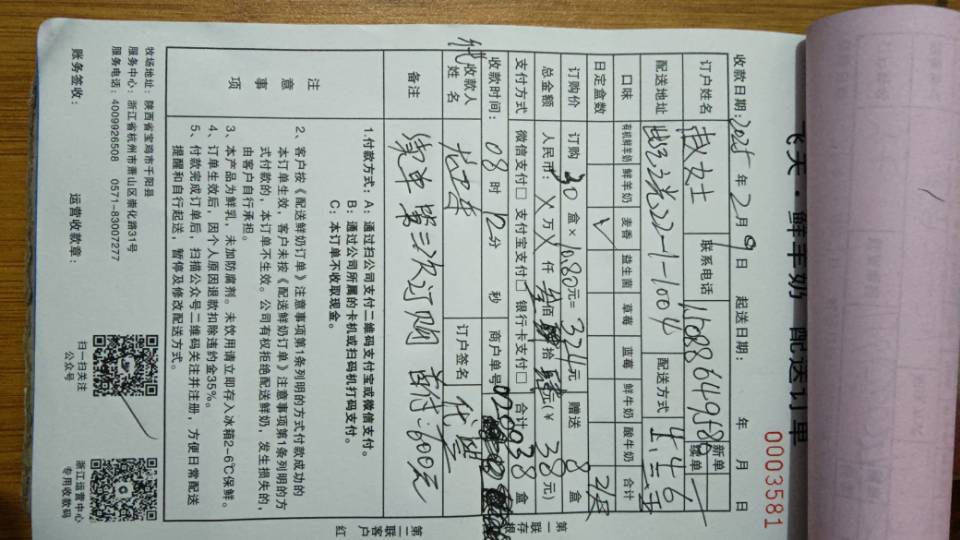 飞天·鲜羊奶 配送订单
0003581
收款日期:2025年2月9日 起送日期: 年 月 日
订户姓名 赵女士 联系电话 新单 续单
配送地址 配送方式
口味 有机鲜羊奶 鲜羊奶 麦香 益生菌 草莓 蓝莓 鲜牛奶 酸牛奶 合计
日定盒数 √
订购价 订购 30 盒× 10.80元= 324元 赠送 8 盒
总金额 人民币: 万 仟 佰 拾 元(¥ 元)
支付方式 微信支付□ 支付宝支付□ 银行卡支付□ 合计 38 盒
收款时间: 08 时 12分 秒 商户单号
代 收款人姓名 订户签名
备注 续单第三次订购 首付:600元
注意事项
1.付款方式:A:通过扫公司支付二维码支付宝或微信支付。
B:通过公司所属的卡机或扫码机打码支付。
C:本订单不收取现金。
2、客户按《配送鲜奶订单》注意事项第1条列明的方式付款成功的
本订单生效,客户未按《配送鲜奶订单》注意事项第1条列明的方
式付款的,本订单不生效。公司有权拒绝配送鲜奶,发生损失的,
由客户自行承担。
3、本产品为鲜乳,未加防腐剂。未饮用请立即存入冰箱2-6℃保鲜。
4、订单生效后,因个人原因退款扣除违约金35%。
5、付款完成订单后,扫描公众号二维码关注并注册,方便日常配送
提醒和自行起送,暂停及修改配送方式。
第一联存根
第二联客户
红
牧场地址:陕西省宝鸡市千阳县
服务中心:浙江省杭州市萧山区崇化路31号
服务电话:4009926508 0571-83007277
扫一扫关注
公众号
浙江运营中心
专用收款码
账务签收: 运营收款章: